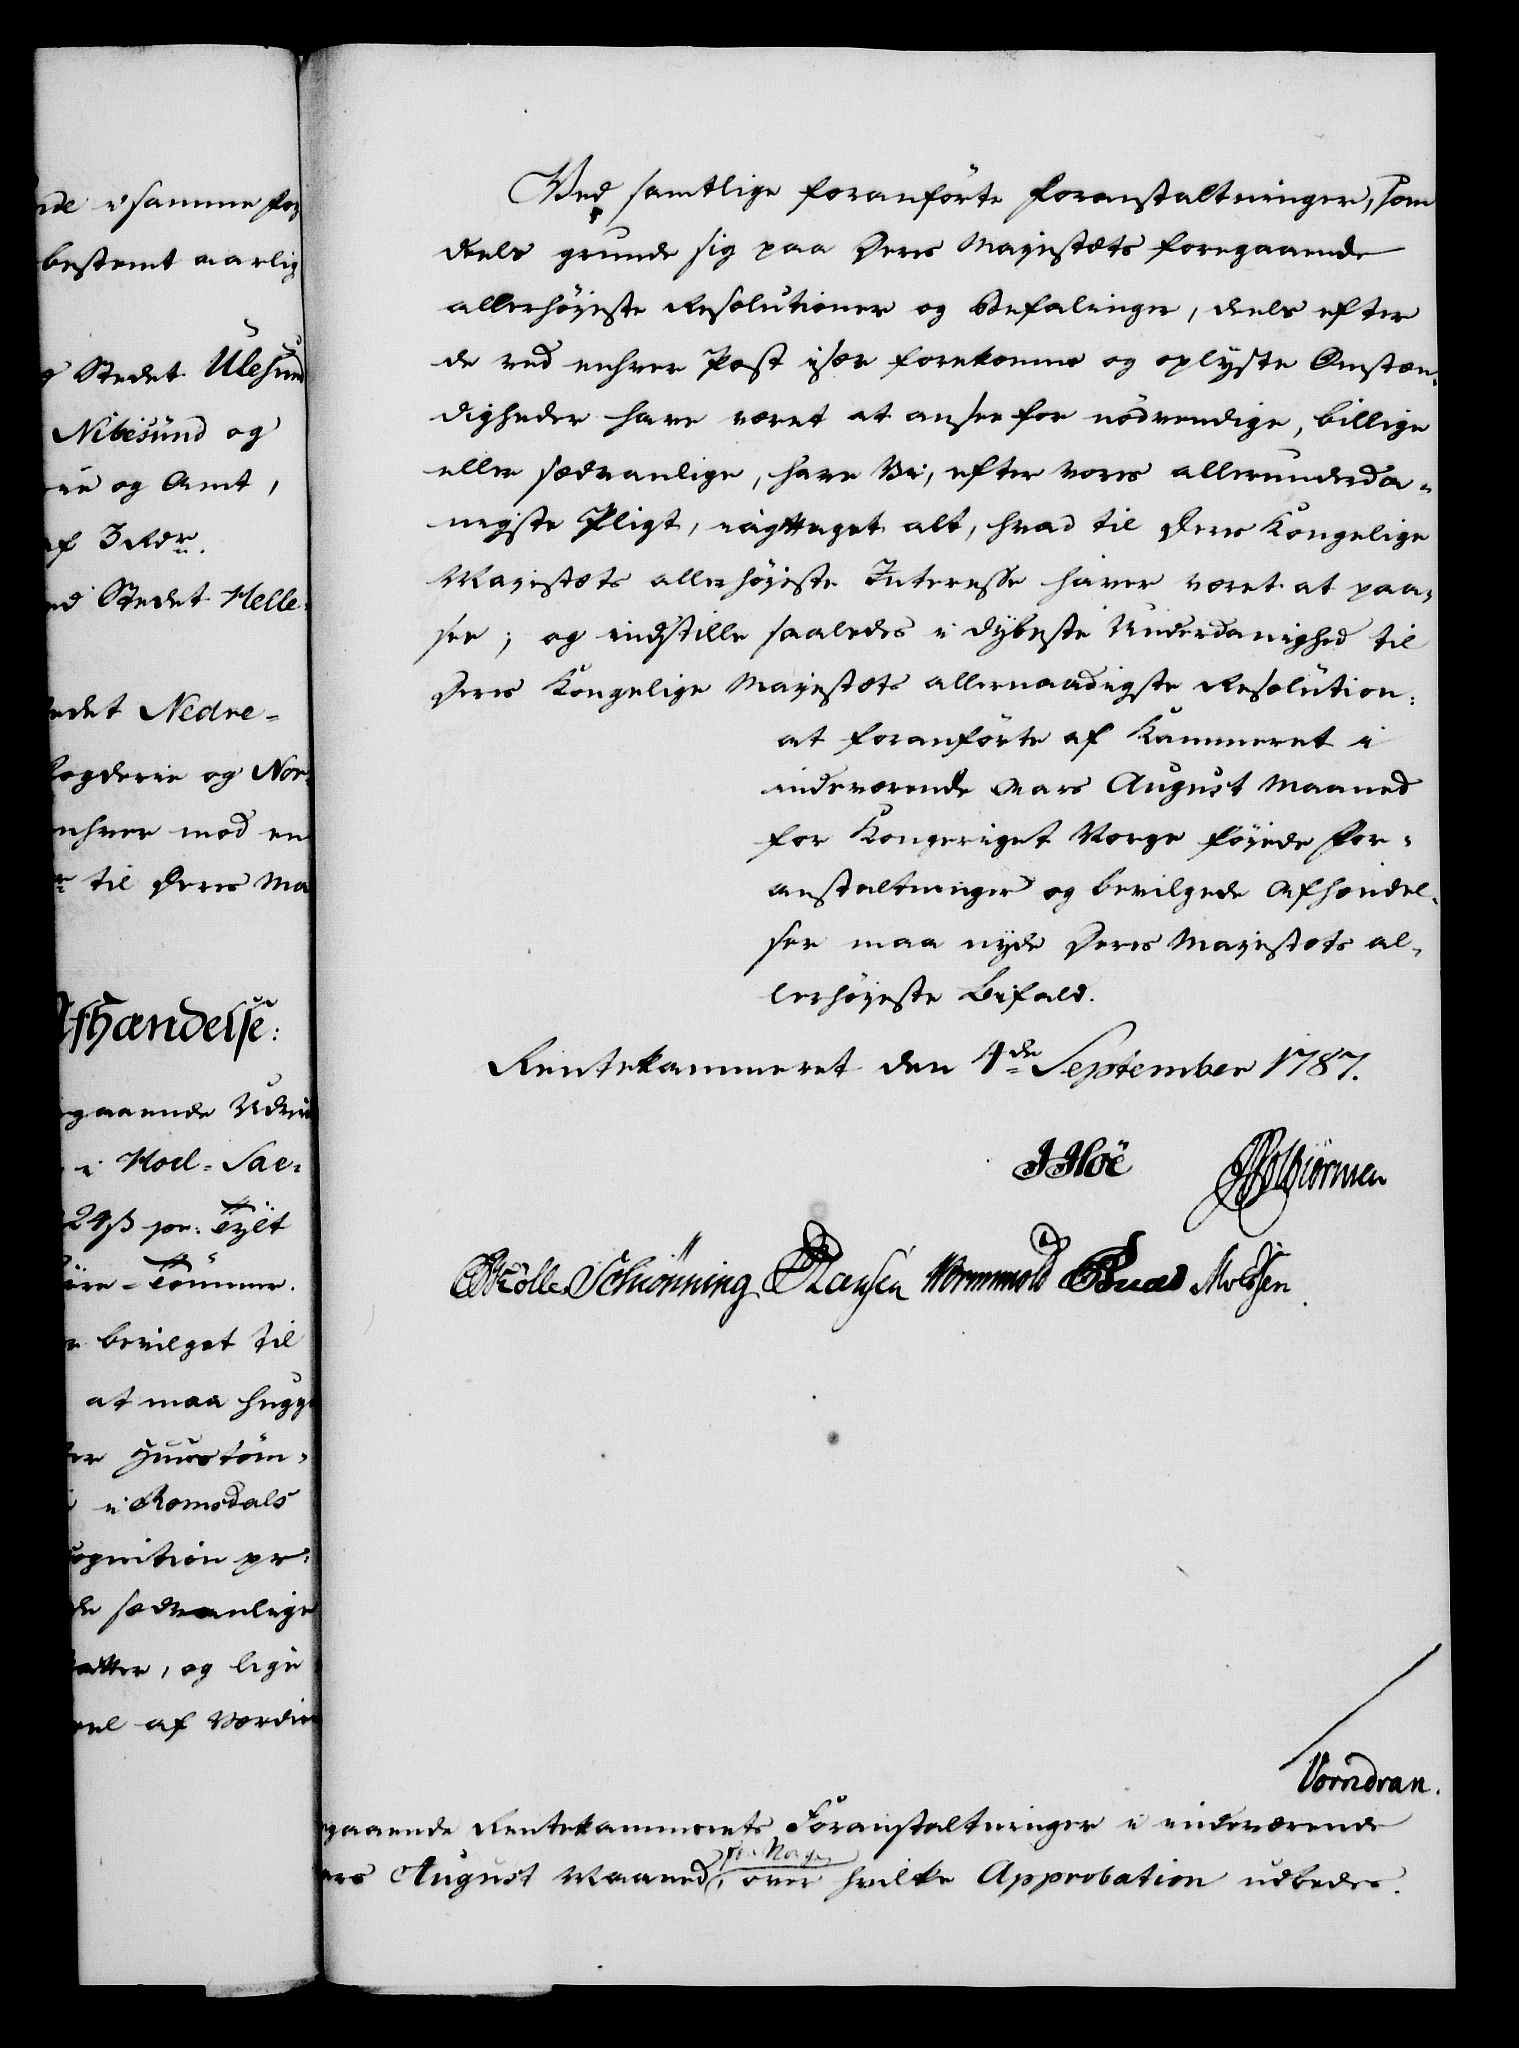 de i samme
bestemt aarlig
Stedet Ulesund
Nibesünd og
og Amt,
af 3 Rdr.
Stedet Helle-
Nedre-
Fogderie og Nor-
enhver mod en
til Deres Ma
Afhændelse:
gaaende
i
24 ß pr. Tylt
Tömmer.
bevilget til
at maa hugge
Huustöm-
i Romsdals
Recognition pr:
de sædvanlige
og lige
deel af Værdien
Ved samtlige foranførte Foranstaltninger, som
deels grunde sig paa Deres Majestæts foregaaende
allerhøyeste Resolutioner og Befalinger, deels efter
de ved enhver Post især forekomne og oplyste Omstæn-
digheder have været at ansee for nödvendige, billige
eller sædvanlige, have Vi, efter vores allerunderda-
nigste Pligt, iagttaget alt, hvad til Deres Kongelige
Majestæts allerhöyeste Interesse haver været at paa-
see; og indstille saaledes i dybeste Underdanighed til
Deres Kongelige Majestæts allernaadigste Resolution:
at foranförte af Kammeret i
indeværende Aars August Maaned
for Kongeriget Norge föyede For-
anstaltninger og bevilgede Afhændel-
ser maa nyde Deres Majestæts al-
lerhöyeste Bifald.
Rentekammeret den 4de September 1787.
JHoë
Müller Schiönning Hansen Wormskiold
Vorndran.
gaaende Rentekammerets Foranstaltninger i indeværende
for Norge
Aars August Maaned, over hvilke Approbation udbedes.